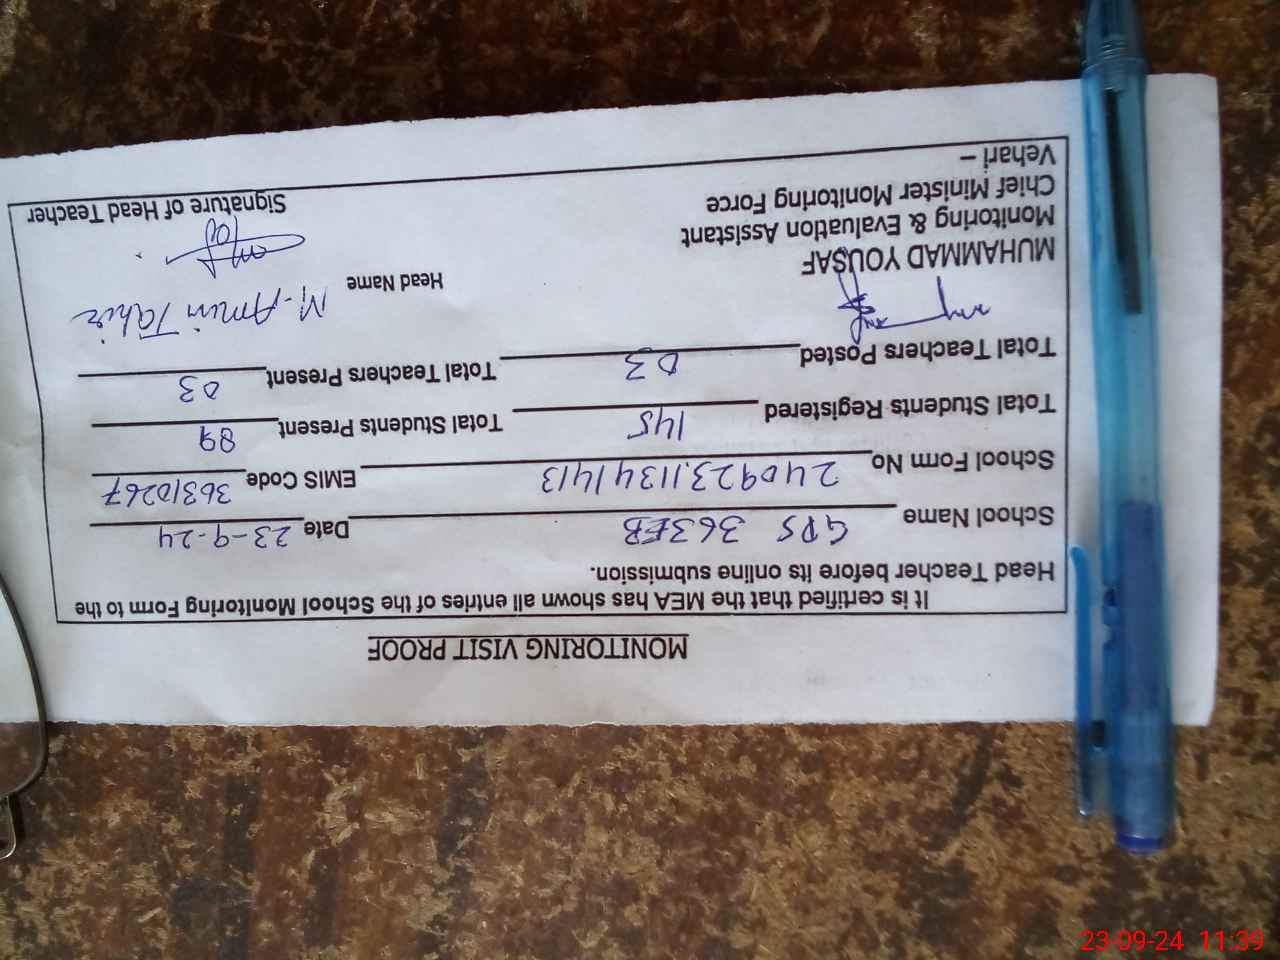 MONITORING VISIT PROOF
It is certified that the MEA has shown all entries of the School Monitoring Form to the
Head Teacher before its online submission.
School Name GPS 363EB Date 23-9-24
School Form No 240923,11341413 EMIS Code 36310267
Total Students Registered 145 Total Students Present 89
Total Teachers Posted 03 Total Teachers Present 03
MUHAMMAD YOUSAF
Head Name M. Amin Tahir
Monitoring & Evaluation Assistant
Chief Minister Monitoring Force
Signature of Head Teacher
Vehari –
23-09-24 11:39